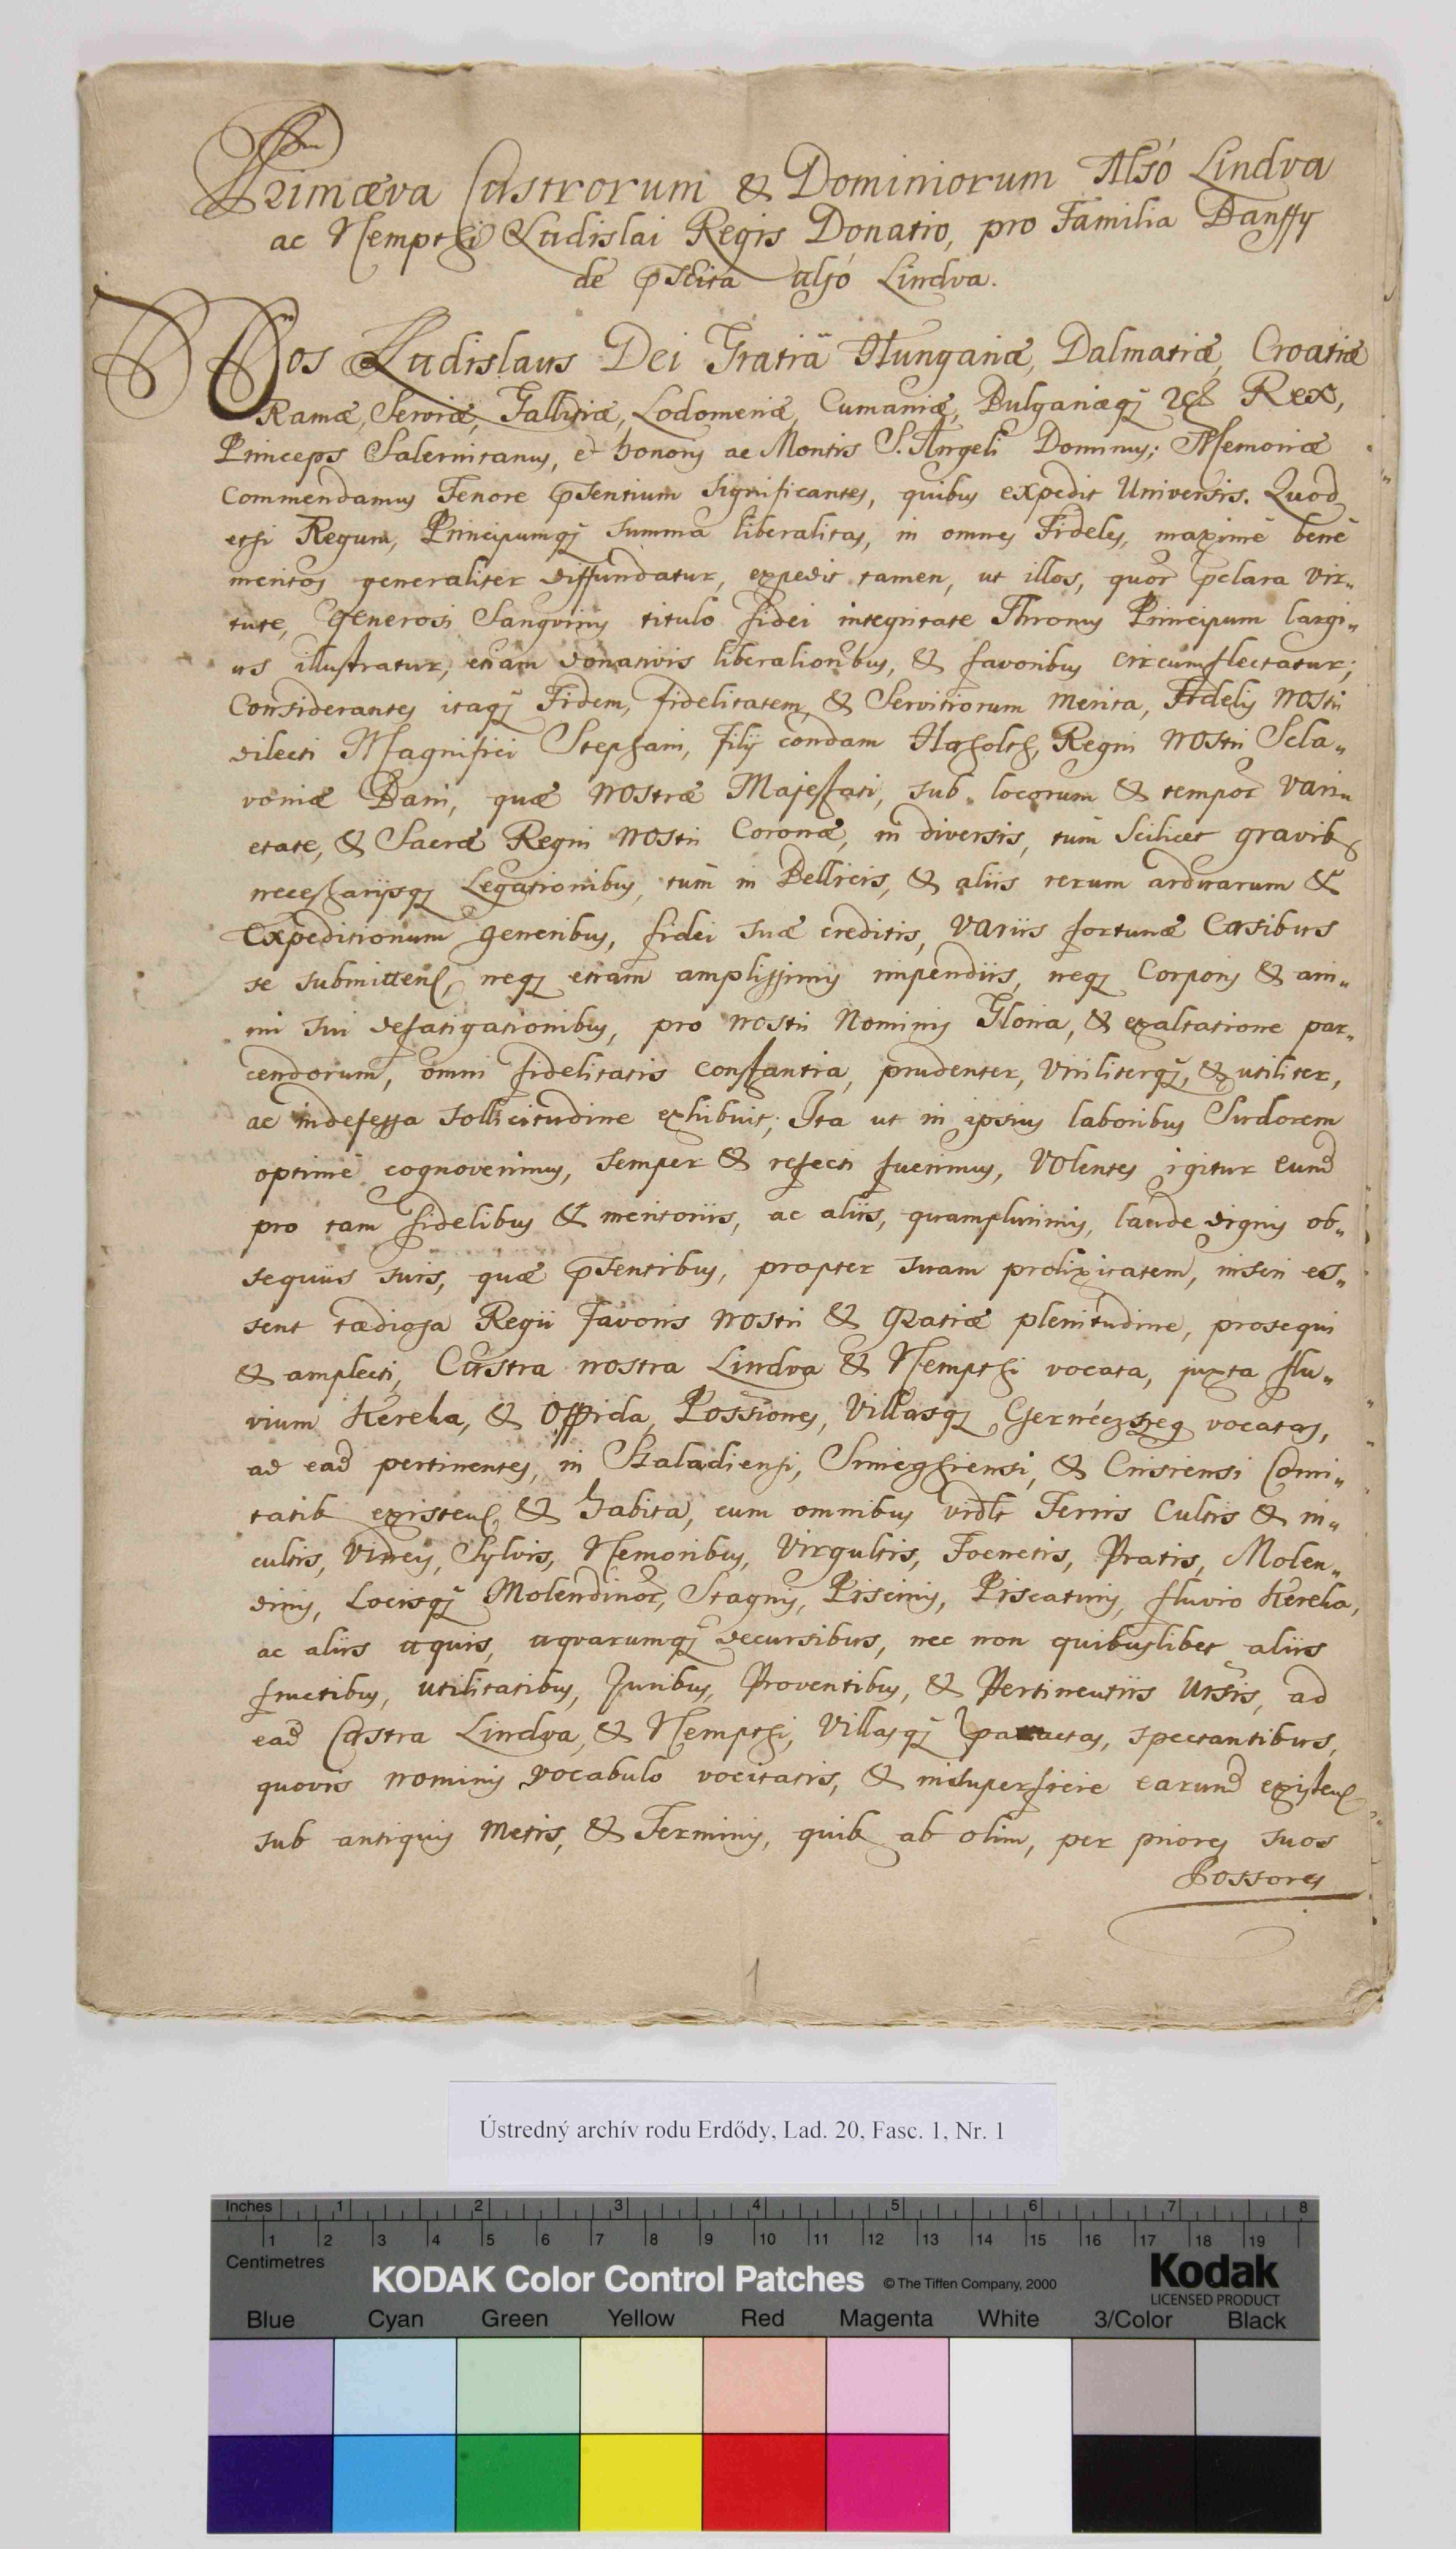 Primæva Castrorum & Dominiorum Alsó Lindva
ac Nempthi Ladislai Regis Donatio, pro Familia Banffy
de pscita alsó Lindva.
Nos Ladislaus Dei Gratiâ Hungariæ, Dalmatiæ, Croatiæ
Ramæ, Serviæ, Galliciæ, Lodomeriæ, Cumaniæ, Bulgariæq; Rex,
Princeps Salernitanus, et honoris ac Montis S. Angeli Dominus; Memoriæ
Commendamus Tenore psentium significantes, quibus expedit Universis. Quod
etsi Regum, Principumq; summa liberalitas, in omnes Fideles, maximè benè
meritos generaliter diffundatur, expedit tamen, ut illos, quor pclara vir„
tute, Generosi Sangvinis titulo fidei integritate Thronus Principum largi„
us illustratur, etiam donativis liberalioribus, & favoribus circumflectatur;
Considerantes itaq; Fidem, fidelitatem, & Servitiorum merita, Fidelis nostri
dilecti Magnifici Stephani, filij condam Haholth, Regni nostri Scla„
voniæ Bani, quæ nostræ Majestati, sub locorum & tempor vari„
etate, & Sacræ Regni nostri Coronæ, in diversis, tum Scilicet gravib
necessarijsq; Legationibus, tum in Bellicis, & aliis rerum arduarum &
Expeditionum generibus, fidei suæ creditis, variis fortunæ Casibus
se submitten, neq; etiam amplissimis impendiis, neq; Corporis & ani„
mi sui defatigationibus, pro nostri Nominis Gloria, & exaltatione par„
cendorum, omni fidelitatis constantia, prudenter, Viriliterq;, & utiliter,
ac indefessa sollicitudine exhibuit; Ita ut in ipsius laboribus Sudorem
optimè cognoverimus, semper & refecti fuerimus, Volentes igitur eund
pro tam fidelibus & meritoriis, ac aliis, quamplurimis, laude dignis ob„
sequiis suis, quæ psentibus, propter suam prolixitatem, inseri es„
sent tædiosa Regii Favoris nostri & Gratiæ plenitudine, prosequi
& amplecti, Castra nostra Lindva & Nempthi vocata, juxta flu„
vium Kereka, & Oppida, Possiones, Villasq; Csernéczszeg vocatas,
ad ead pertinentes, in Szaladiensi, Simeghiensi, & Crisiensi Comi„
tatib existen & habita, cum omnibus vidlt Terris Cultis & in„
cultis, Vineis, Sylvis, Nemoribus, Virgultis, Foenetis, Pratis, Molen„
dinis, Locisq; Molendinor, Stagnis, Piscinis, Piscaturis, fluvio Kereka,
ac aliis aquis, aquarumq; decursibus, nec non quibuslibet aliis
fructibus, utilitatibus, Juribus, Proventibus, & Pertinentiis Ursis, ad
ead Castra Lindva, & Nempthi, Villasq; spectantibus,
quovis nominis vocabulo vocitatis, & in superficie earund existen
sub antiquis metis, & Terminis, quib ab olim, per priores suos
Possores
1
Ústredný archív rodu Erdődy, Lad. 20, Fasc. 1, Nr. 1
Inches 1 2 3 4 5 6 7 8
1 2 3 4 5 6 7 8 9 10 11 12 13 14 15 16 17 18 19
Centimetres
KODAK Color Control Patches © The Tiffen Company, 2000 Kodak
LICENSED PRODUCT
Blue Cyan Green Yellow Red Magenta White 3/Color Black